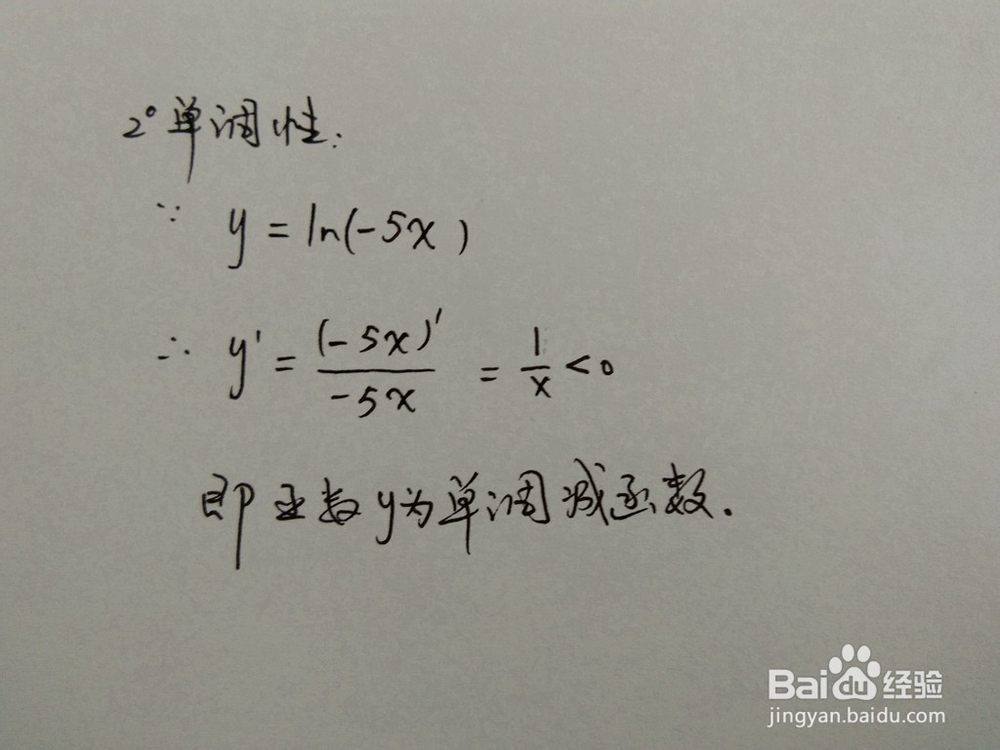 2° 单调性.
∵ y = ln(-5x)
∴ y' = (-5x)' / -5x = 1/x < 0
即函数y为单调减函数.
Baidu经验
jingyan.baidu.com